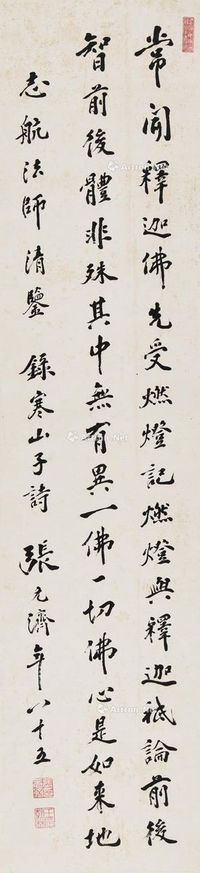 常聞釋迦佛先受燃燈記燃燈與釋迦祗論前後
智前後體非殊其中無有異一佛一切佛心是如来地
志航法師清鑒 錄寒山子詩 張元濟年八十五